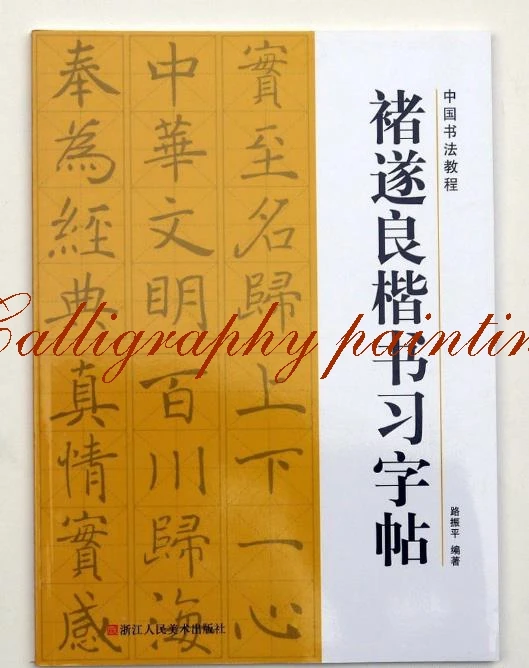 中国书法教程
褚遂良楷书习字帖
路振平 编著
實至名歸上下一心
中華文明百川歸海
奉為經典真情實感
浙江人民美术出版社
Calligraphy paintin